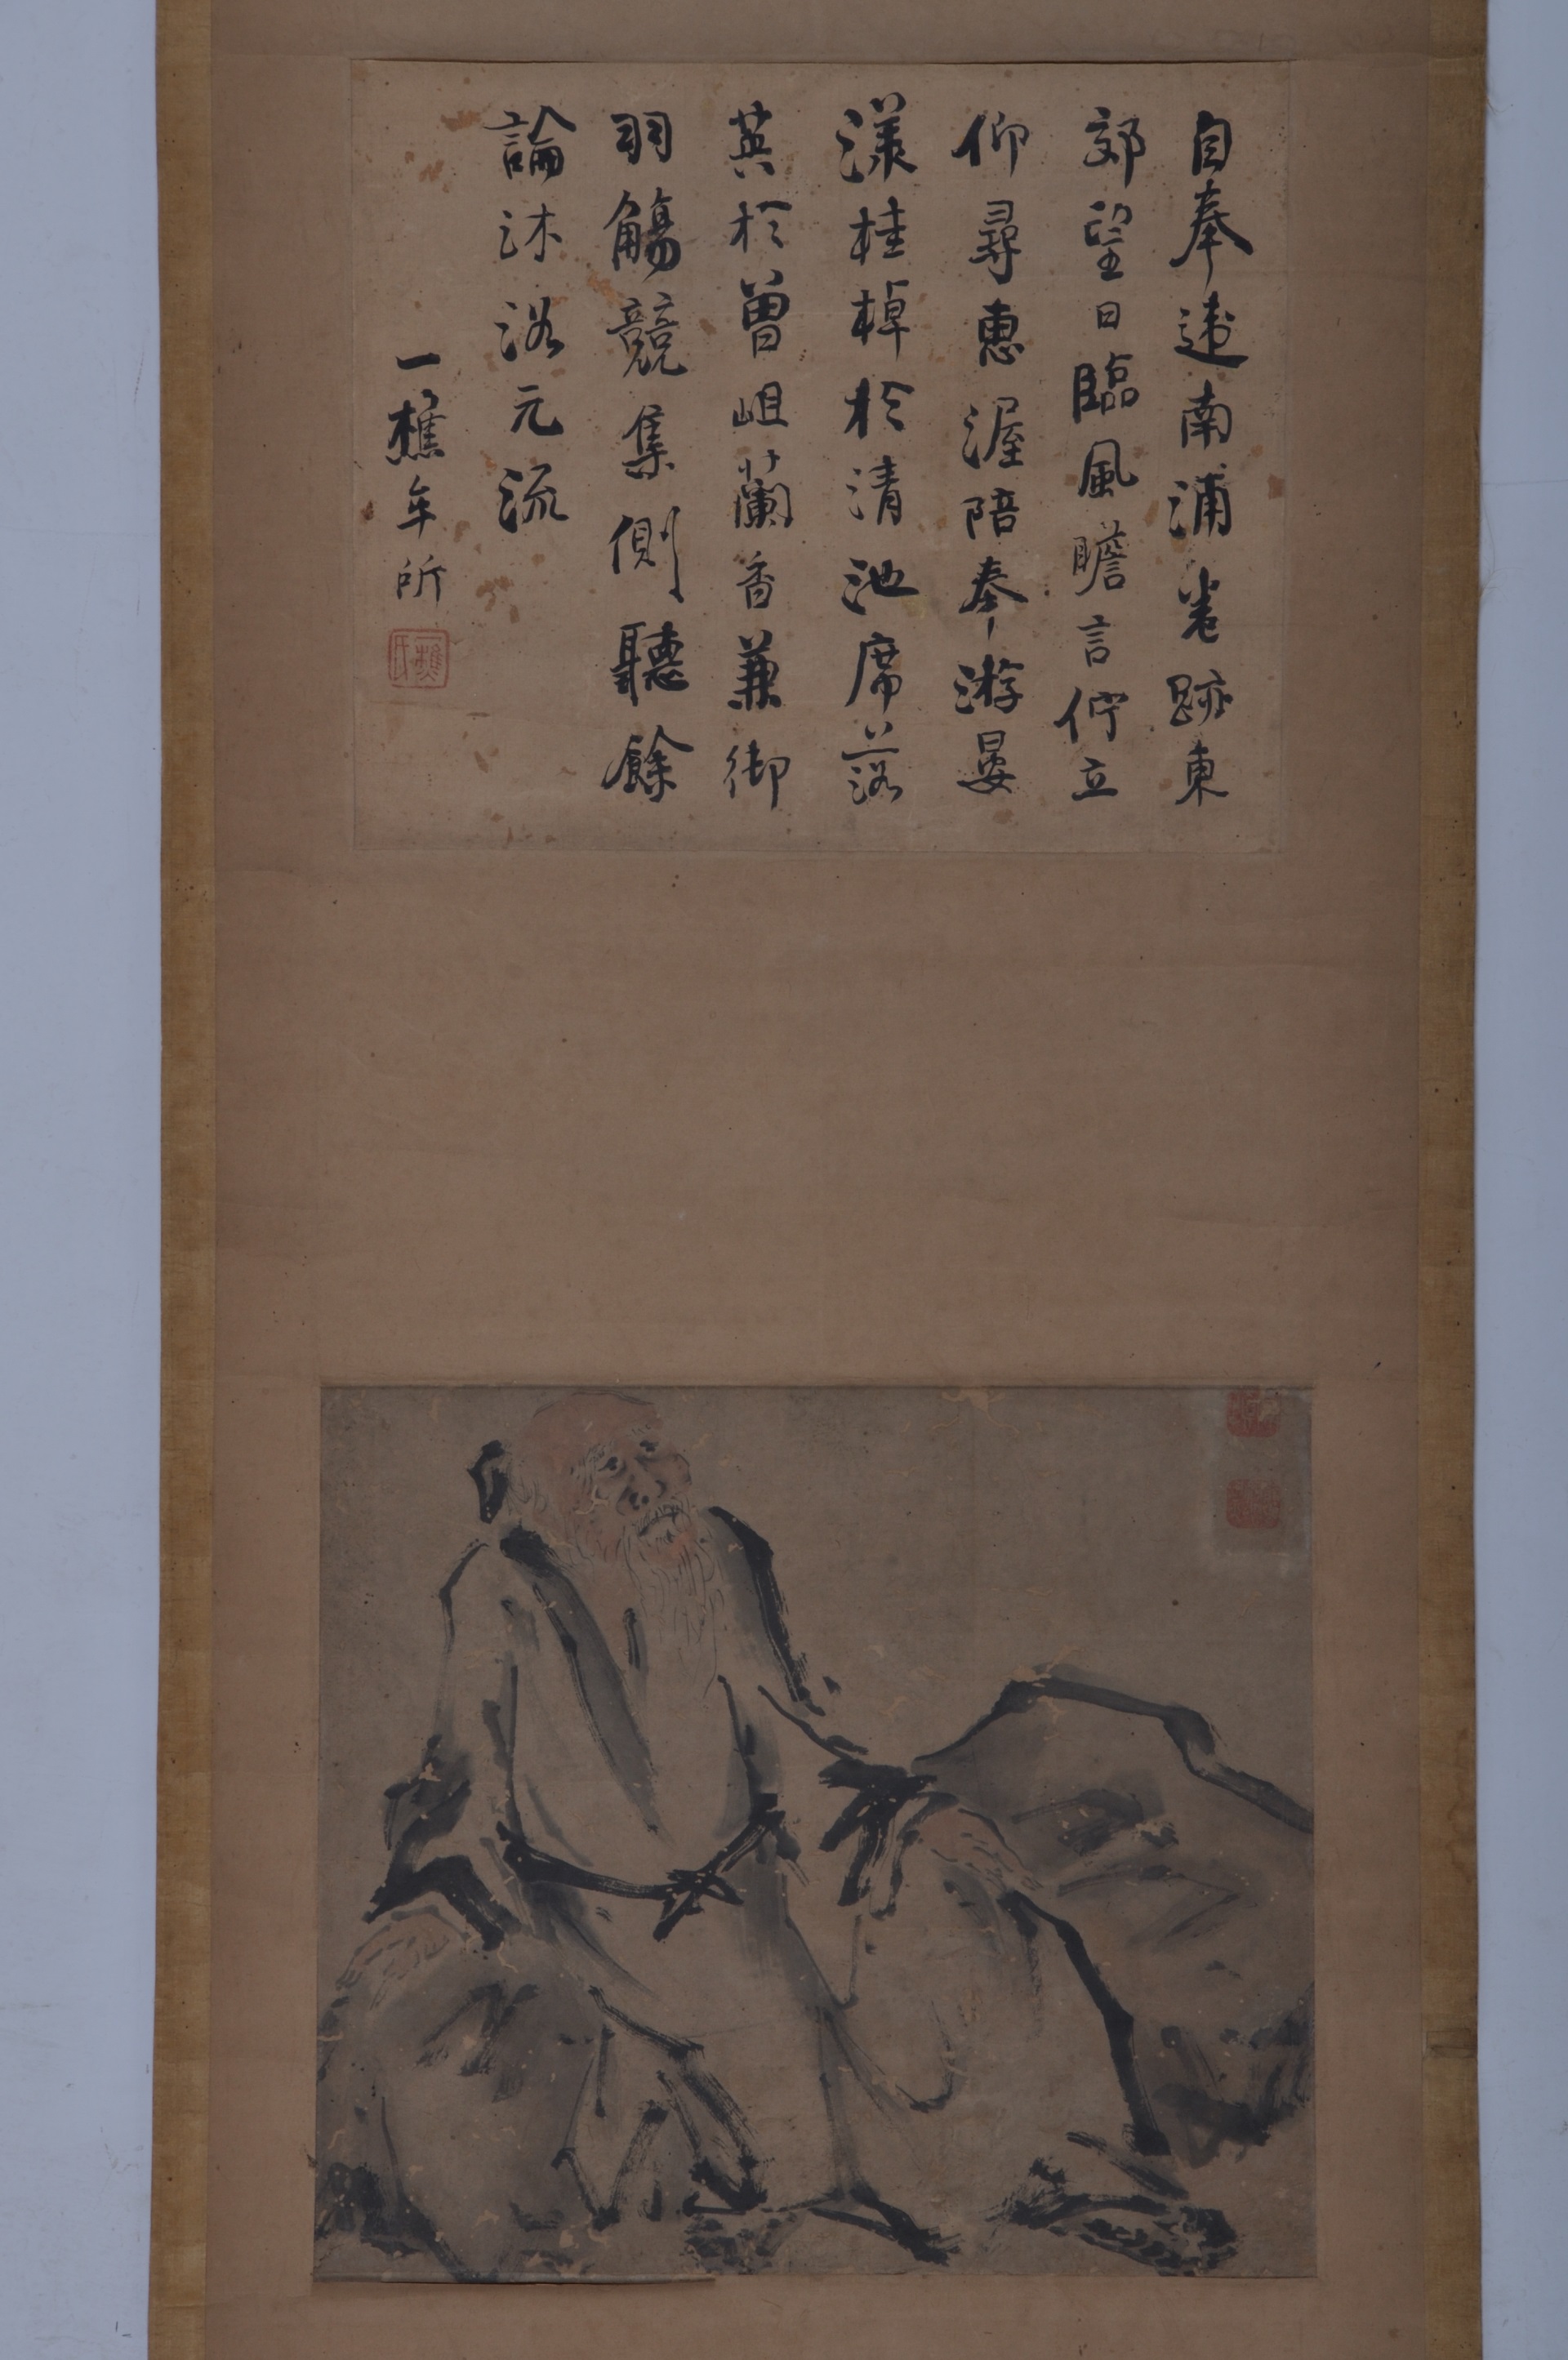 自奉違南浦卷跡東
郊望日臨風瞻言佇立
仰尋惠渥陪奉游宴
漾桂棹於清池席落
英於曾岨蘭香兼御
羽觴競集側聽餘
論沐浴元流
一樵年所